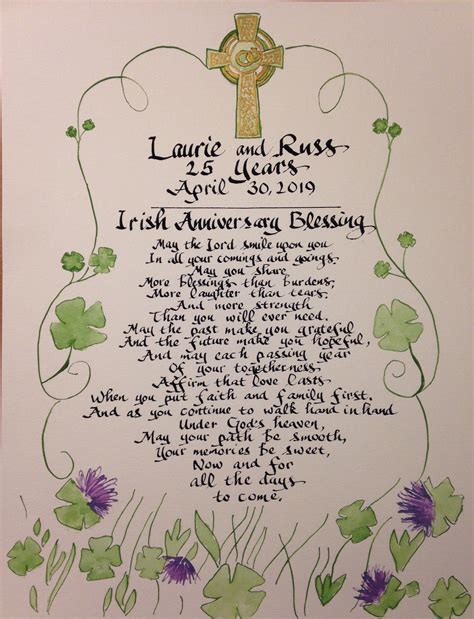 Laurie and Russ
25 Years
April 30, 2019
Irish Anniversary Blessing
May the Lord smile upon you
In all your comings and goings.
May you share
More Blessings than Burdens,
More laughter than tears,
And more strength
Than you will ever need.
May the past make you grateful
And the future make you hopeful,
And may each passing year
Of your togetherness
Affirm that love lasts
When you put faith and family first.
And as you continue to walk hand in hand
Under God's heaven,
May your path be smooth,
Your memories be sweet,
Now and for
all the days
to come.